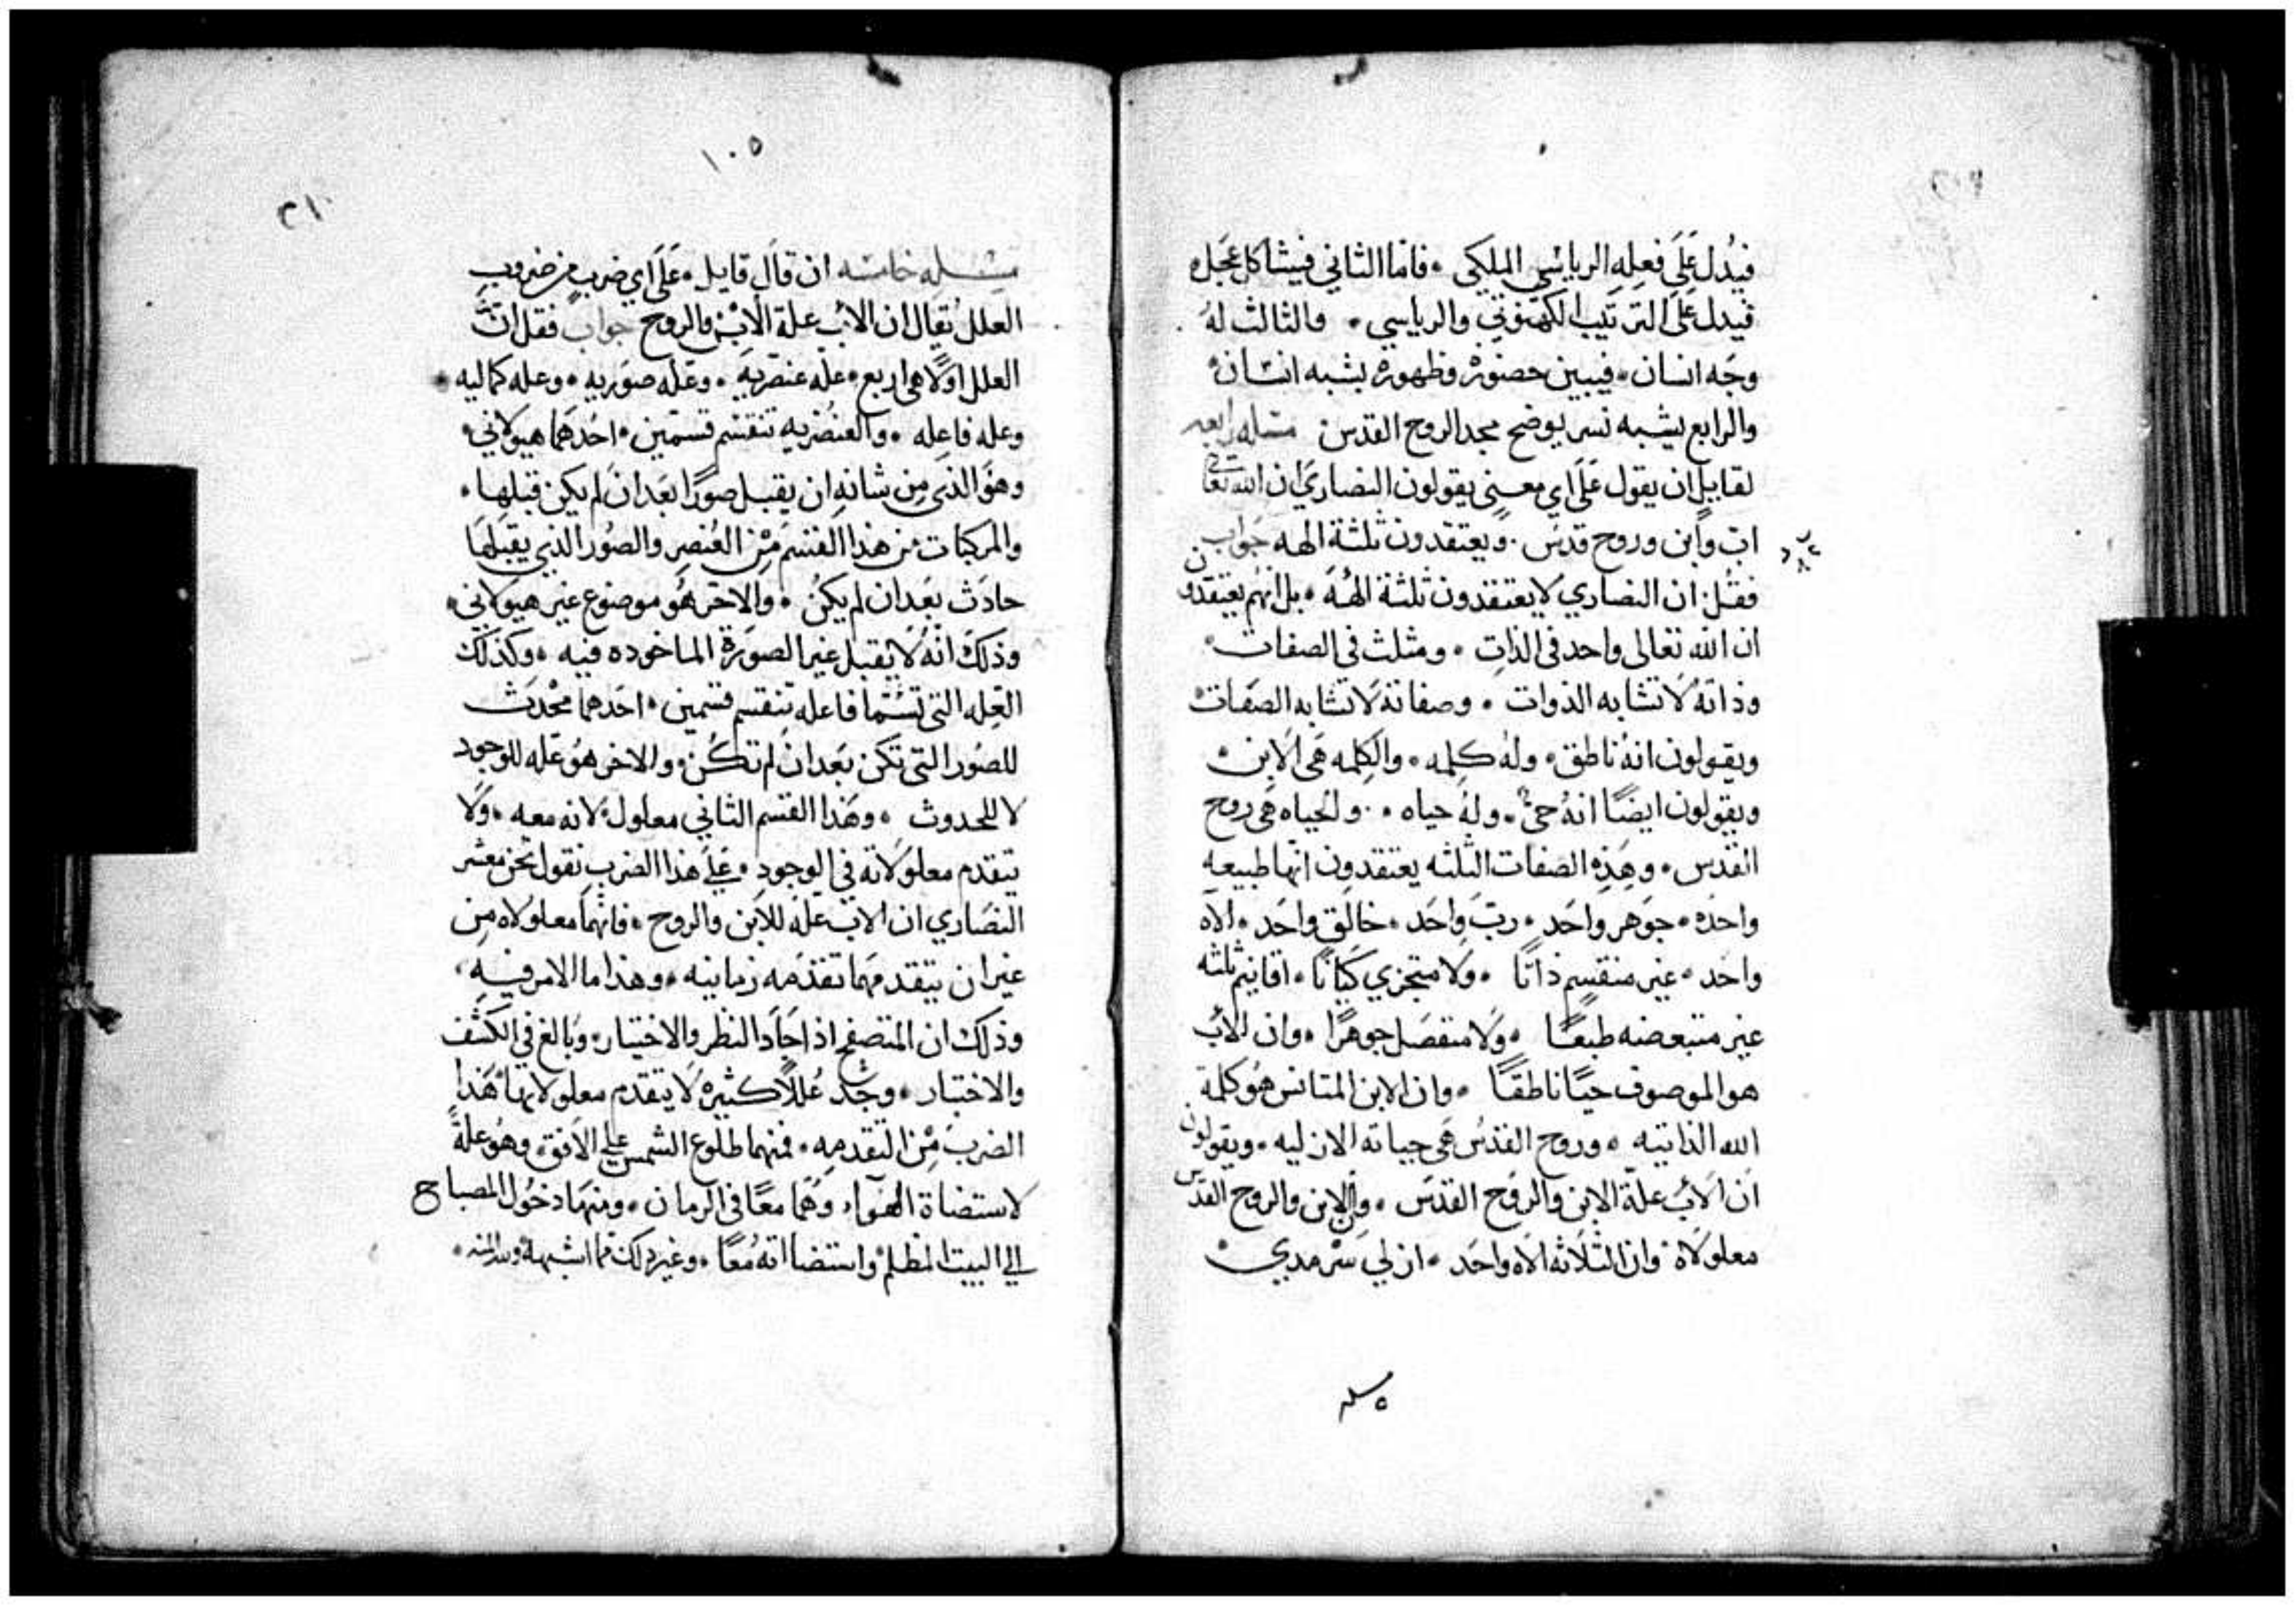 فيُدل عَلَى فعلِهِ الرياسي الملكي ٠ فاما الثاني فيشاكل عَجل
فيدل عَلى الترتيب الكهنوتي والرياسي ٠ والثالث لهُ
وجَه انسان ٠ فيبين حضورهُ وظهورهُ بشبه انسَان ٠
والرابع يشبه نسر يوضح مجد الروح القدس مسَله رابعه
لقايلٍ ان يقول عَلَى اي معنىٍ يقولون النصارَي ان الله تعا
ابَ وابن وروح قدسَ ٠ ويعتقدون ثلثة الهه جوَاب
فقُل ان النصاري لا يعتقدون ثلثة الههَ ٠ بل انهُم يعتقدون
ان الله تعالى واحد في الذاتِ ٠ ومثلث في الصفات ٠
وذاتهُ لَا تشابه الذوات ٠ وصفاتهَ لَا تشابه الصَفات ٠
ويقولون انهُ ناطق ٠ ولهُ كلِمه ٠ والكلِمه هَي الَابن ٠
ويقولون ايضًا انهُ حيٌّ ٠ ولهُ حياه ٠ والحياه هَي روح
القدس ٠ وهَذِه الصَفات الثلثه يعتقدون انها طبيعه
واحدَه ٠ جوَهر واحَد ٠ ربَ واحَد ٠ خالق واحَد ٠ الاَه
واحَد ٠ غير منقسِم ذاتًا ٠ ولَا متجزي كيَانًا ٠ اقانيم ثلثه
غير متبعضه طبعًا ٠ ولَا منفصَل جوهرًا ٠ وان الاَب
هو الموصوف حيًا ناطقًا ٠ وان الابن المتانس هُو كلمة
الله الذاتيه ٠ وروح القدسُ هَي حياته الازليه ٠ ويقولون
ان الَابَ علة الابن والروَح القدسَ ٠ وان الابن والروح القدس
معلولَاه وان الثلَاثه الَاه واحَد ٠ ازلي سَرْمدي ٠
٥ مسله
١٠٥
٢١٠
مسَله خامسَه ان قال قايل ٠ عَلَى اي ضربٍ من ضروبِ
العلل يُقال ان الاَب علة الَابْن والروح جواب فقل انَّ
العلل اولًا هي اربع ٠ علَه عنصَريهَ ٠ وعَلَه صوَريه ٠ وعله كماليه ٠
وعله فاعِله ٠ والعنُصْريه تنقسَم قسَمين ٠ احُدهَما هيولَاني ٠
وهَوَ الذي مِن شانهِ ان يقبل صوَرًا بَعَد ان لَم يكن قبلها ٠
والمركبات من هذا القسَم مِن العُنصر والصُور الذي يقبَلهَا
حادَث بَعَد ان لم يكنُ ٠ والاخَر هُو موضوع غير هيولَاني ٠
وذلكَ انهُ لَا يقبل غير الصوَرَة الماخوده فيه ٠ وكذلكَ
العِله التي تسَمَا فاعله تنقسم قسَمين ٠ احَدهما محْدَث
للصُور التي تكَن بَعد ان لم تكُن ٠ والاخر هُو عَله للوجود
لا للحدوث ٠ وهَذا القسَم الثاني معلولَ لانه معه ٠ ولَا
يتقدم معلولَاته في الوجودِ ٠ عَلى هذا الضربِ نقول نحَن معشر
النصَاري ان الاب علَه للَابن والروح ٠ فانهُما معلولَاه مِن
غير ان يتقدمهما تقدمَه زمانيه ٠ وهذا ما الامر فيهِ ٠
وذلك ان المتصفح اذا اجَادَ النظر والاختيار ٠ وبَالغ في الكشَف
والاختبار ٠ وجَد عُللًا كثيرهُ لَا يتقدم معلولَاتها هَذا
الضربَ مِن التقدمهِ ٠ فمنهما طلوع الشمس على الَافق ٠ وهُو علةً
لاستضاة الهَوآء وهَما معًا في الزمان ٠ ومنهَا دخُول المصباح
الي البيت المظلم واستضااتهُ مُعًا ٠ وغير ذلك مما اشبههُ